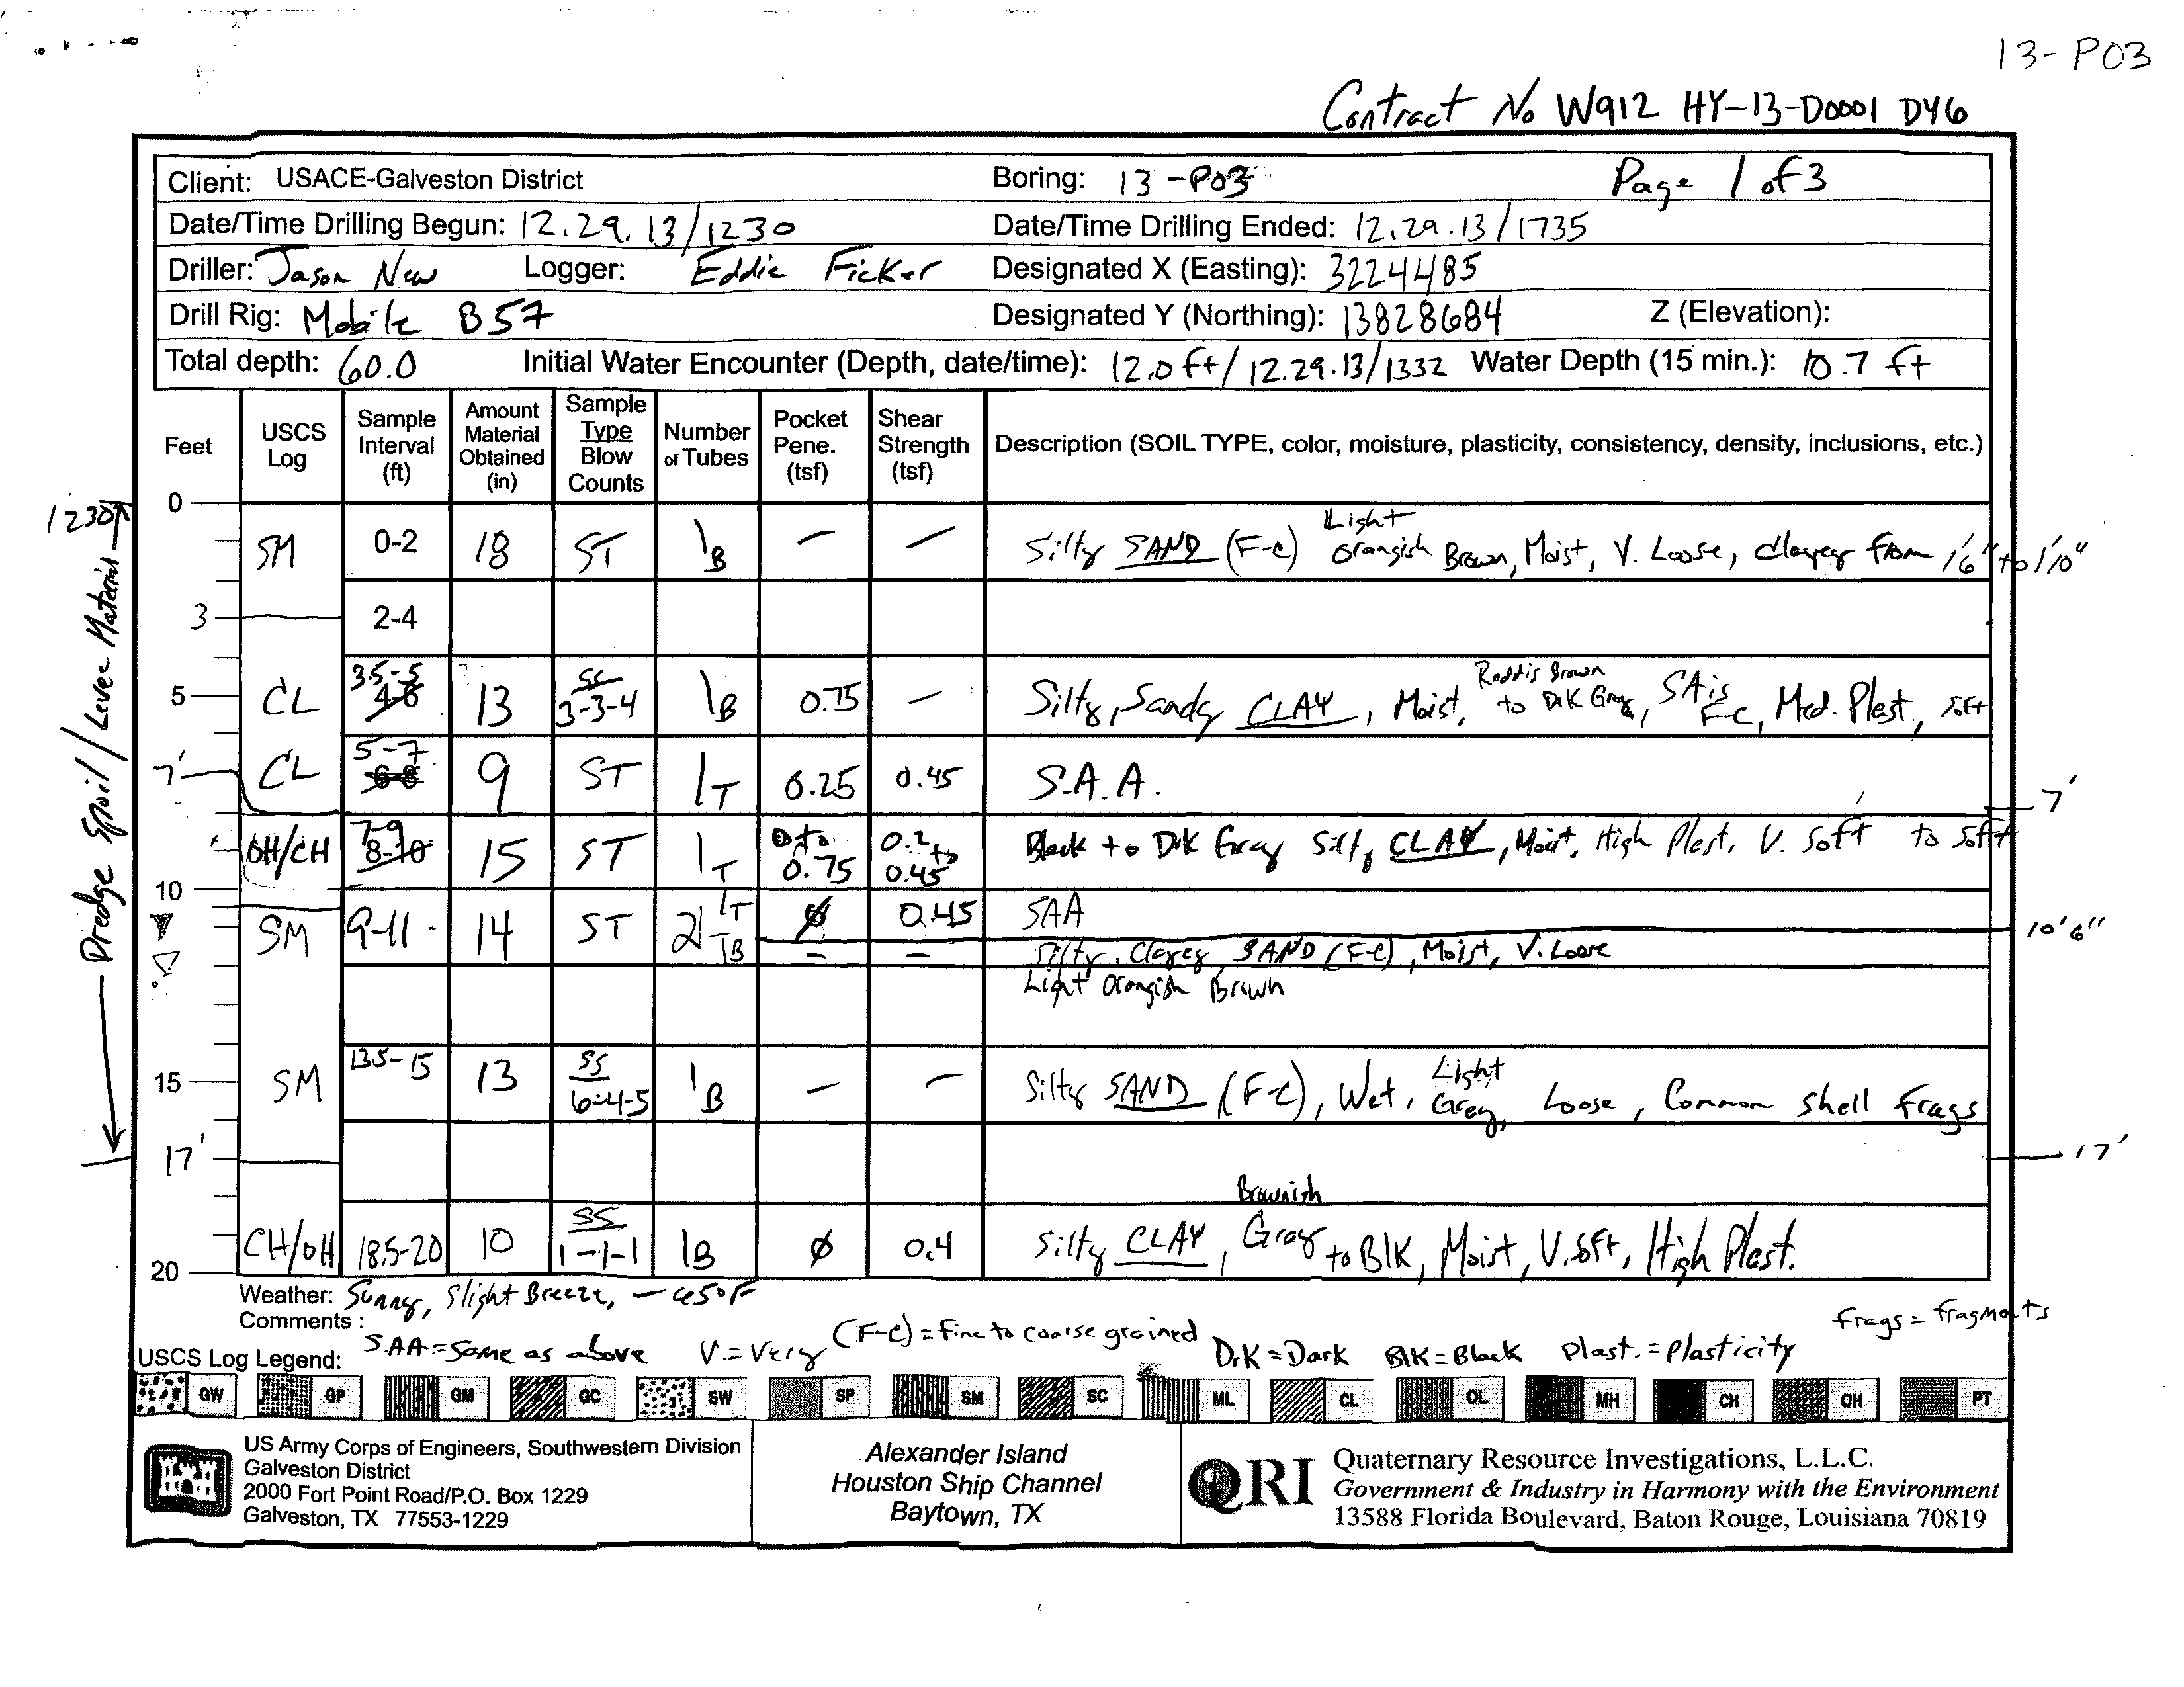 13-P03
Contract No W912 HY-13-D0001 DY6
Client: USACE-Galveston District Boring: 13-P03 Page 1 of 3
Date/Time Drilling Begun: 12.29.13/1230 Date/Time Drilling Ended: 12.29.13/1735
Driller: Jason New Logger: Eddie Ficker Designated X (Easting): 3224485
Drill Rig: Mobile B57 Designated Y (Northing): 13828684 Z (Elevation):
Total depth: 60.0 Initial Water Encounter (Depth, date/time): 12.0 ft/12.29.13/1332 Water Depth (15 min.): 10.7 ft
Feet USCS Log Sample Interval (ft) Amount Material Obtained (in) Sample Type Blow Counts Number of Tubes Pocket Pene. (tsf) Shear Strength (tsf) Description (SOIL TYPE, color, moisture, plasticity, consistency, density, inclusions, etc.)
0
1230
Dredge Spoil/Levee Material
SM 0-2 18 ST 1B – – Silty SAND (F-C) Light Orangish Brown, Moist, V. Loose, clayey from 1'6" to 1'10"
3 2-4
5 CL 3.5-5 4-6 13 SS 3-3-4 1B 0.75 – Silty, Sandy CLAY, Moist, Reddis Brown to DrK Gray, SA is F-C, Med. Plast, soft
7' CL 5-7 6-8 9 ST 1T 0.25 0.45 S.A.A. 7'
OH/CH 7-9 8-10 15 ST 1T 0 to 0.75 0.2 to 0.45 Black to DrK Gray Silty CLAY, Moist, High Plast, V. Soft to Soft
10
SM 9-11 14 ST 2 1T 1B ϕ 0.45 SAA 10'6"
– – Silty, Clayey SAND (F-C), Moist, V. Loose
Light Orangish Brown
15 SM 13.5-15 13 SS 6-4-5 1B – – Silty SAND (F-C), Wet, Light Grey, Loose, Common shell frags
17' 17'
CH/OH 18.5-20 10 SS 1-1-1 1B ϕ 0.4 Silty CLAY, Brownish Gray to BlK, Moist, V. Soft, High Plast.
20
Weather: Sunny, Slight Breeze, ~45°F
Comments: SAA=Same as above V.=Very (F-C)=Fine to coarse grained DrK=Dark BlK=Black Plast.=Plasticity frags=fragments
USCS Log Legend:
GW GP GM GC SW SP SM SC ML CL OL MH CH OH PT
US Army Corps of Engineers, Southwestern Division
Galveston District
2000 Fort Point Road/P.O. Box 1229
Galveston, TX 77553-1229
Alexander Island
Houston Ship Channel
Baytown, TX
QRI
Quaternary Resource Investigations, L.L.C.
Government & Industry in Harmony with the Environment
13588 Florida Boulevard, Baton Rouge, Louisiana 70819